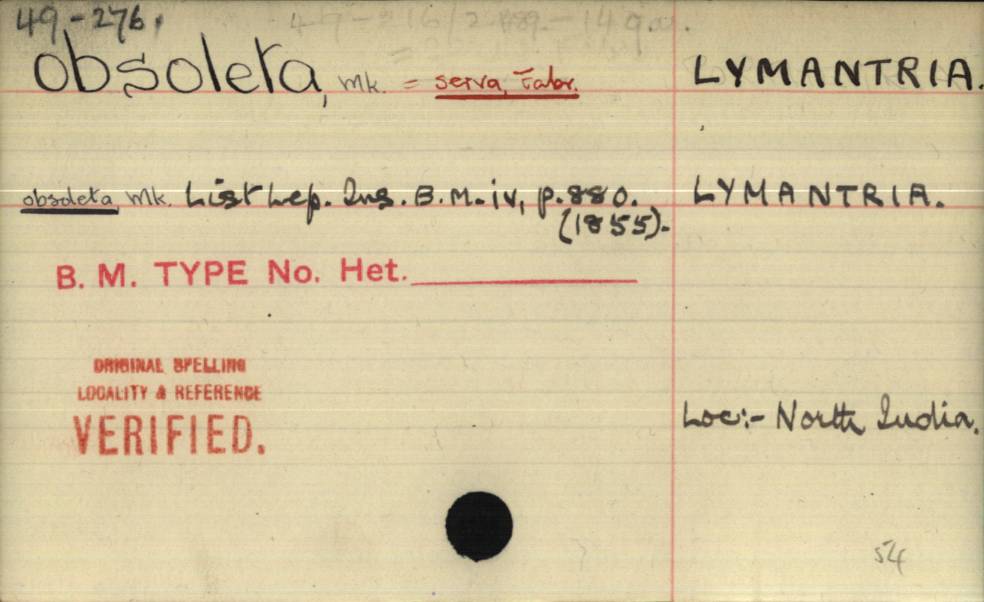 49-276.
obsoleta, Wlk. = serva, Fabr. LYMANTRIA.
obsoleta Wlk. List Lep. Ins. B.M. iv, p. 880. LYMANTRIA.
(1855).
B. M. TYPE No. Het.
ORIGINAL SPELLING
LOCALITY & REFERENCE
VERIFIED.
Loc:- North India.
54